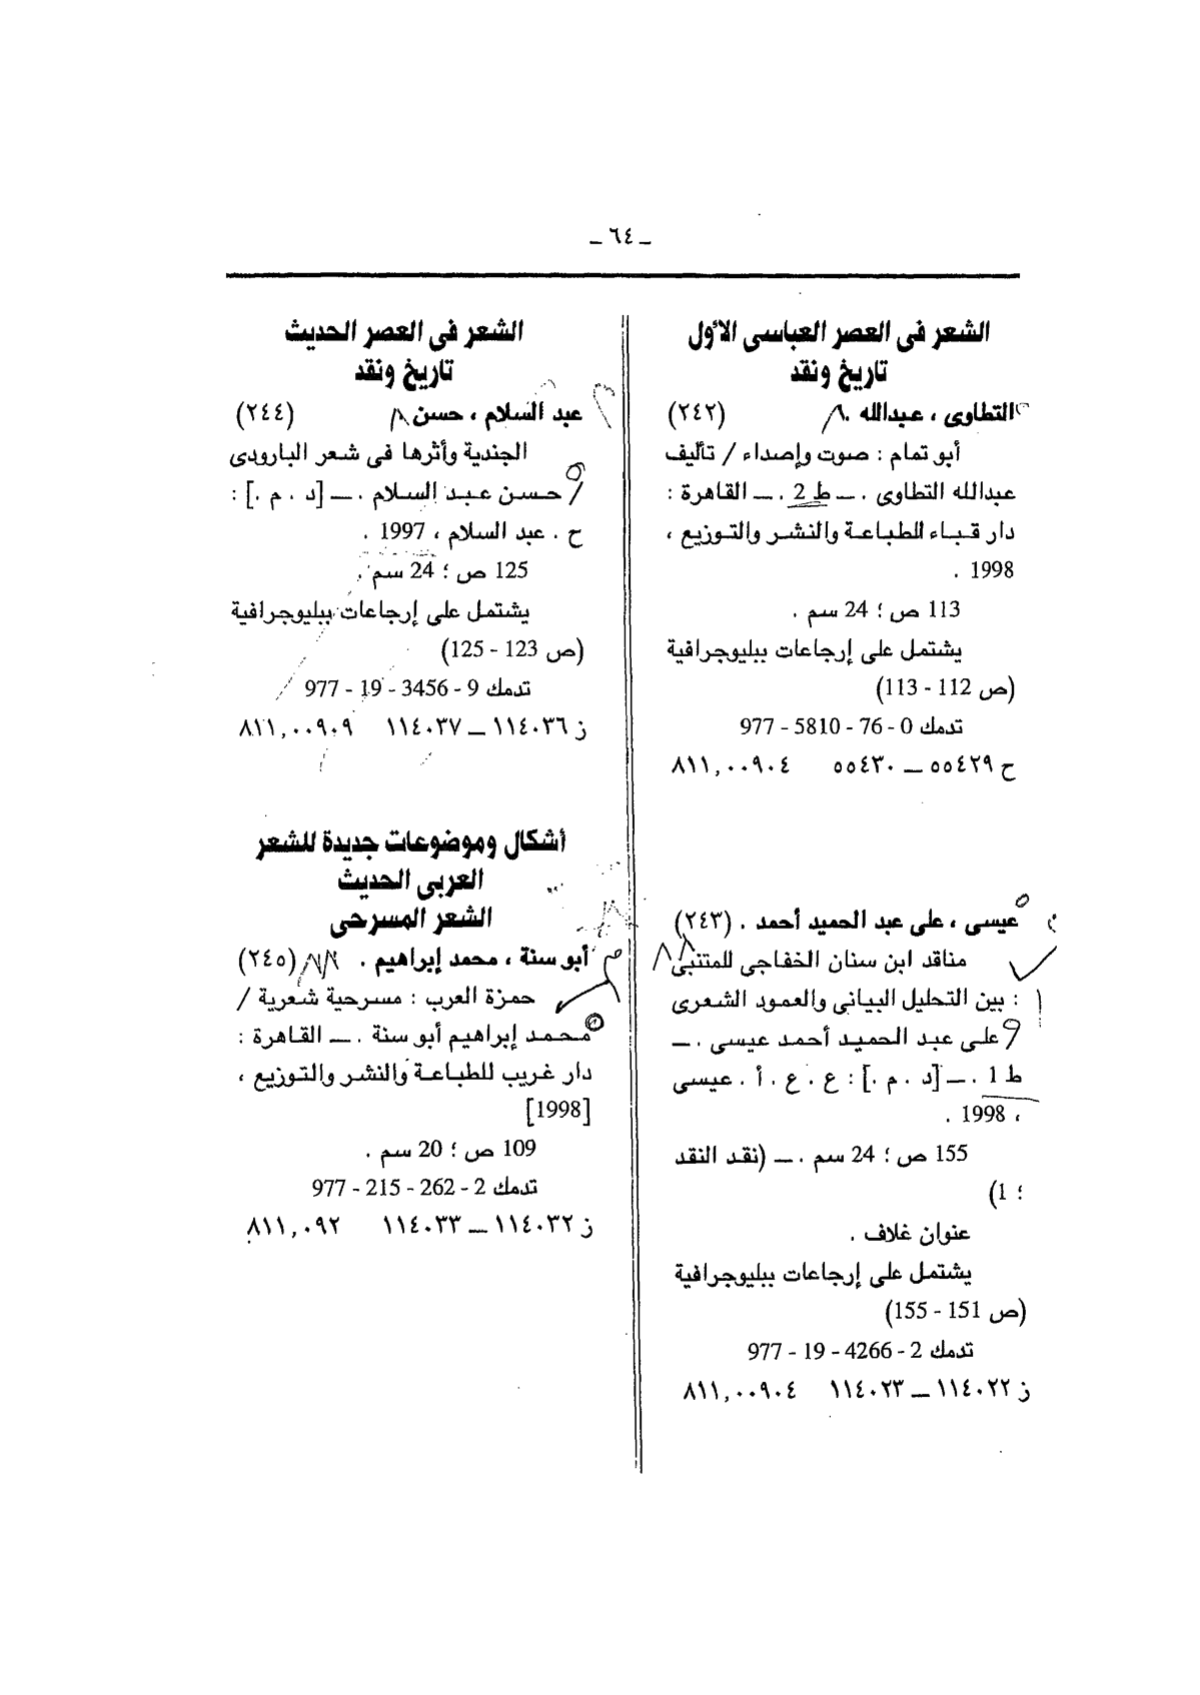 ـ ٦٤ ـ
الشعر فى العصر العباسى الأول
تاريخ ونقد
التطاوى ، عبدالله . (٢٤٢)
أبو تمام : صوت وإصداء / تأليف
عبدالله التطاوى . ـ ط 2 . ـ القاهرة :
دار قباء للطباعة والنشر والتوزيع ،
1998 .
113 ص ؛ 24 سم .
يشتمل على إرجاعات ببليوجرافية
(ص 112 - 113)
تدمك 0 - 76 - 5810 - 977
ح ٥٥٤٢٩ ـ ٥٥٤٣٠ ٨١١,٠٠٩٠٤
عيسى ، على عبد الحميد أحمد . (٢٤٣)
مناقد ابن سنان الخفاجى للمتنبى
: بين التحليل البيانى والعمود الشعرى
/ على عبد الحميد أحمد عيسى . ـ
ط 1 . ـ [د . م .] : ع . ع . أ . عيسى
، 1998 .
155 ص ؛ 24 سم . ـ (نقد النقد
؛ 1)
عنوان غلاف .
يشتمل على إرجاعات ببليوجرافية
(ص 151 - 155)
تدمك 2 - 4266 - 19 - 977
ز ١١٤٠٢٢ ـ ١١٤٠٢٣ ٨١١,٠٠٩٠٤
الشعر فى العصر الحديث
تاريخ ونقد
عبد السلام ، حسن (٢٤٤)
الجندية وأثرها فى شعر البارودى
/ حسن عبد السلام . ـ [د . م .] :
ح . عبد السلام ، 1997 .
125 ص ؛ 24 سم .
يشتمل على إرجاعات ببليوجرافية
(ص 123 - 125)
تدمك 9 - 3456 - 19 - 977
ز ١١٤٠٣٦ ـ ١١٤٠٣٧ ٨١١,٠٠٩٠٩
أشكال وموضوعات جديدة للشعر
العربى الحديث
الشعر المسرحى
أبو سنة ، محمد إبراهيم . (٢٤٥)
حمزة العرب : مسرحية شعرية /
محمد إبراهيم أبو سنة . ـ القاهرة :
دار غريب للطباعة والنشر والتوزيع ،
[1998]
109 ص ؛ 20 سم .
تدمك 2 - 262 - 215 - 977
ز ١١٤٠٣٢ ـ ١١٤٠٣٣ ٨١١,٠٩٢